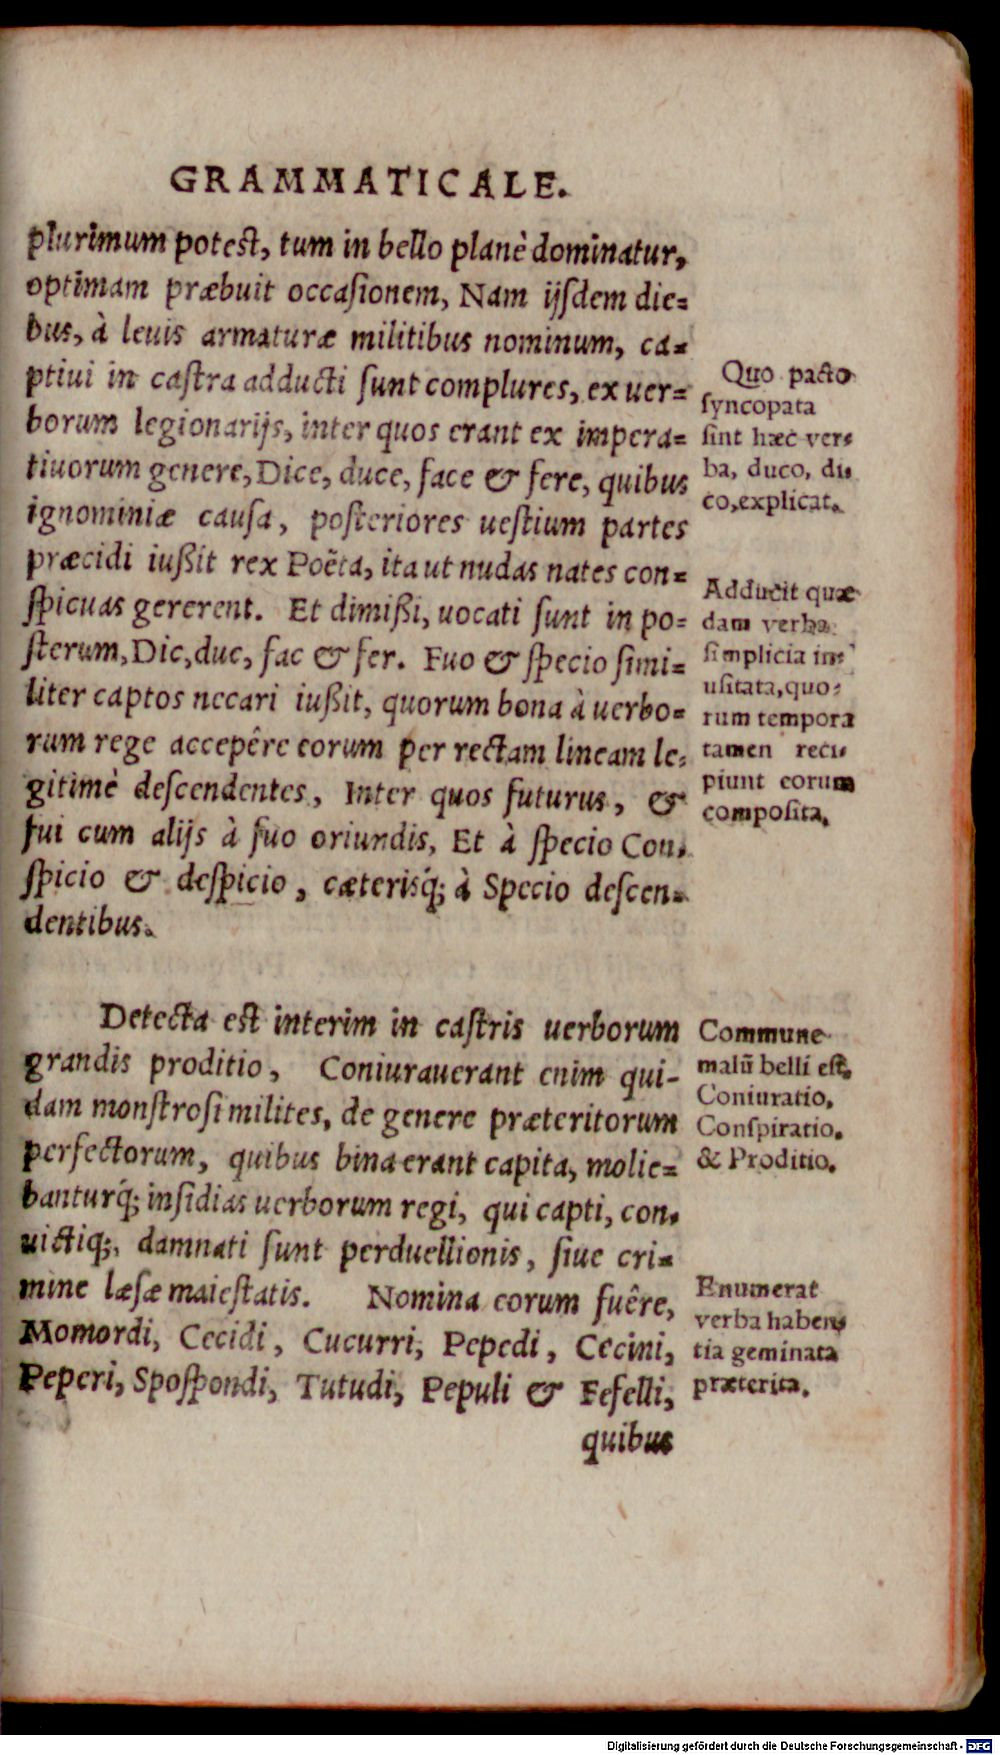 GRAMMATICALE.
plurimum potest, tum in bello planè dominatur,
optimam præbuit occaſionem, Nam ijſdem die=
bus, à leuis armaturæ militibus nominum, ca=
ptiui in caſtra adducti ſunt complures, ex uer=
borum legionarijs, inter quos erant ex impera=
tiuorum genere, Dice, duce, face & fere, quibus
ignominiæ cauſa, poſteriores ueſtium partes
præcidi iußit rex Poëta, ita ut nudas nates con=
ſpicuas gererent. Et dimißi, uocati ſunt in po=
ſterum, Dic, duc, fac & fer. Fuo & ſpecio ſimi=
liter captos necari iußit, quorum bona à uerbo=
rum rege accepêre eorum per rectam lineam le=
gitimè deſcendentes, Inter quos futurus, &
fui cum alijs à fuo oriundis, Et à ſpecio Con=
ſpicio & deſpicio, cæterisq́; à Specio deſcen=
dentibus.
Quo pacto
ſyncopata
ſint hæc ver=
ba, duco, di=
co, explicat.
Adducit quæ
dam verba
ſimplicia in=
uſitata, quo=
rum tempora
tamen reci=
piunt eorum
compoſita.
Detecta est interim in caſtris uerborum
grandis proditio, Coniurauerant enim qui-
dam monſtroſi milites, de genere præteritorum
perfectorum, quibus bina erant capita, molie=
banturq́; inſidias uerborum regi, qui capti, con=
uictiq́;, damnati ſunt perduellionis, ſiue cri=
mine læſæ maieſtatis. Nomina eorum fuêre,
Momordi, Cecidi, Cucurri, Pepedi, Cecini,
Peperi, Spoſpondi, Tutudi, Pepuli & Fefelli,
quibus
Commune
malũ belli eſt,
Coniuratio,
Conſpiratio,
& Proditio.
Enumerat
verba haben=
tia geminata
præterita.
Digitalisierung gefördert durch die Deutsche Forschungsgemeinschaft - DFG